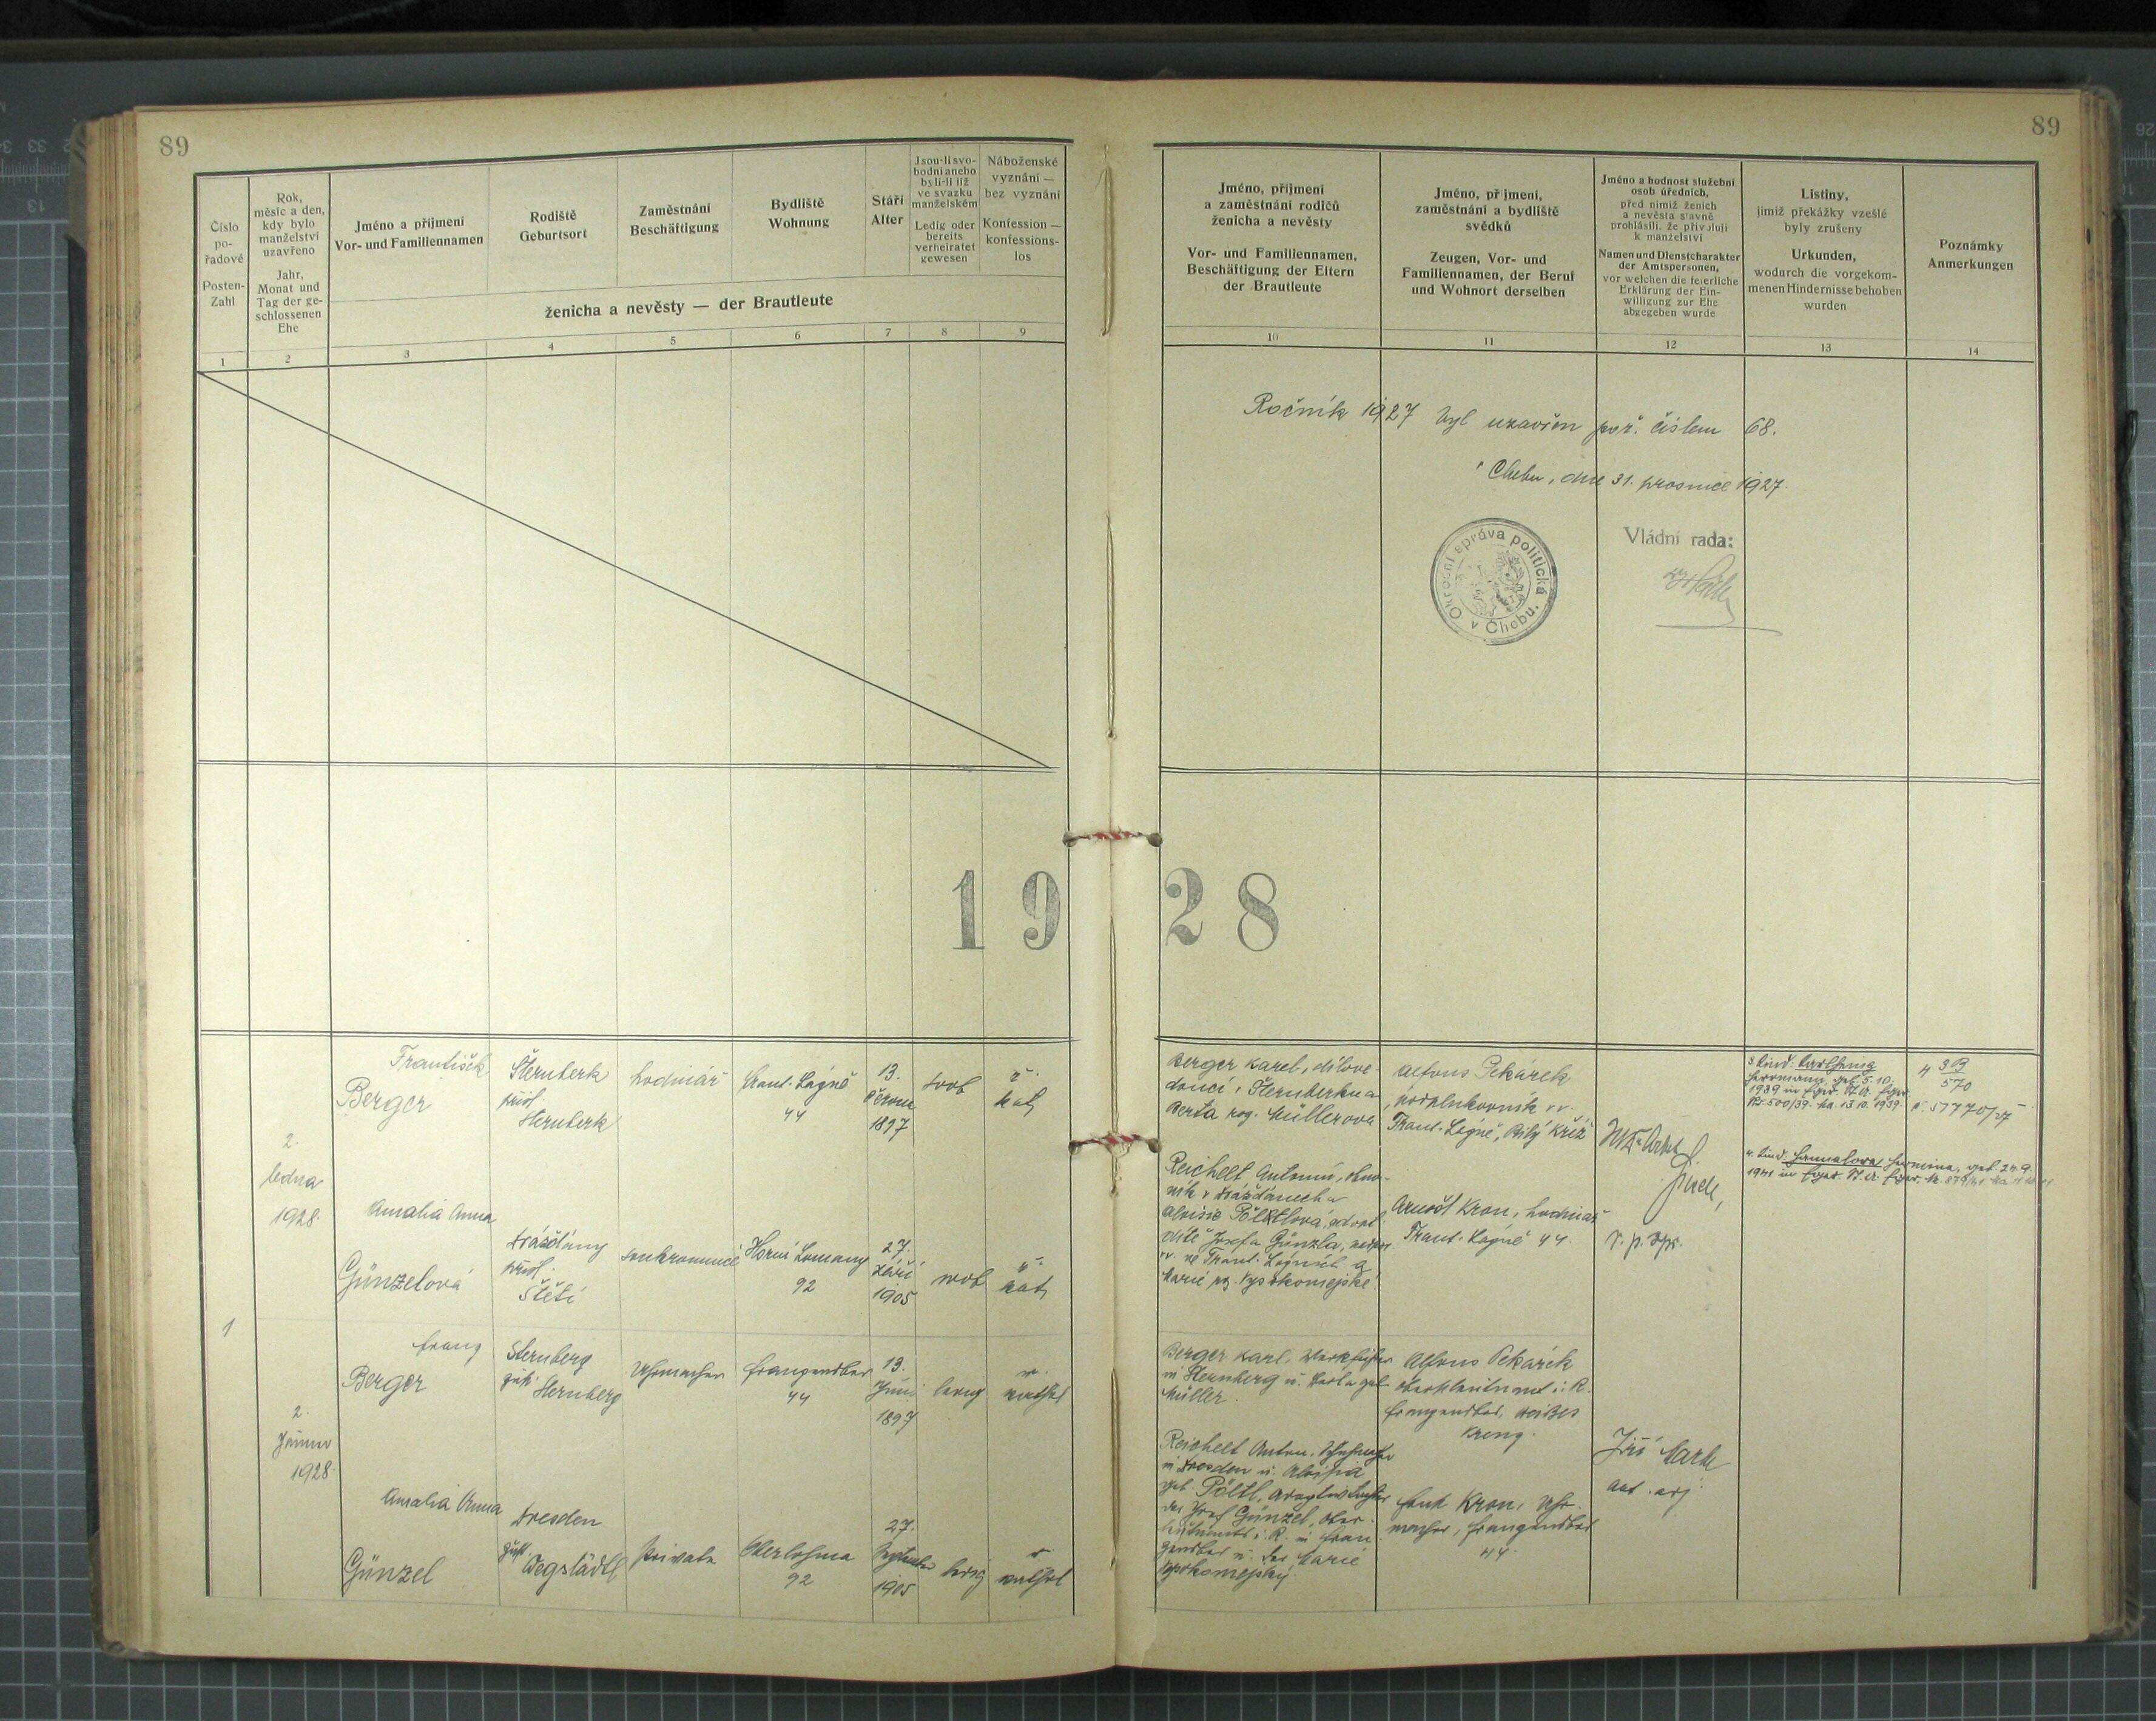 89
89
Číslo
po-
řadové
Posten-
Zahl
Rok,
měsíc a den,
kdy bylo
manželství
uzavřeno
Jahr,
Monat und
Tag der ge-
schlossenen
Ehe
Jméno a příjmení
Vor- und Familiennamen
Rodiště
Geburtsort
Zaměstnání
Beschäftigung
Bydliště
Wohnung
Stáří
Alter
Jsou-li svo-
bodni anebo
byli-li již
ve svazku
manželském
Ledig oder
bereits
verheiratet
gewesen
Náboženské
vyznání —
bez vyznání
Konfession —
konfessions-
los
ženicha a nevěsty — der Brautleute
1 2 3 4 5 6 7 8 9
Jméno, příjmení
a zaměstnání rodičů
ženicha a nevěsty
Vor- und Familiennamen,
Beschäftigung der Eltern
der Brautleute
Jméno, příjmení,
zaměstnání a bydliště
svědků
Zeugen, Vor- und
Familiennamen, der Beruf
und Wohnort derselben
Jméno a hodnost služební
osob úředních,
před nimiž ženich
a nevěsta slavně
prohlásili, že přivolují
k manželství
Namen und Dienstcharakter
der Amtspersonen,
vor welchen die feierliche
Erklärung der Ein-
willigung zur Ehe
abgegeben wurde
Listiny,
jimiž překážky vzešlé
byly zrušeny
Urkunden,
wodurch die vorgekom-
menen Hindernisse behoben
wurden
Poznámky
Anmerkungen
10 11 12 13 14
Ročník 1927 byl uzavřen poř. číslem 68.
Chebu, dne 31. prosince 1927.
Okresní správa politická
v Chebu.
Vládní rada:
1928
2.
ledna
1928.
František
Berger
Šternberk
Šternberk
hodinář
Frant. Lázně
44
13.
června
1897
svob
ř.
kat.
Amalia Anna
Günzelová
Drážďany
Štětí
soukromnice
Horní Lomany
92
27.
září
1905
svob
ř.
kat.
Berger Karel, dílove-
doucí, Šternberku a
Berta roz. Müllerova
Reichelt Antonín,
v Drážďanech a
Aloisie Pöltlová,
Josefa Günzla,
ve Frant. Lázních a
Marie roz. Vyskomejské
Alfons Pekárek
podplukovník v. v.
Frant. Lázně, Bílý Kříž
Arnošt Kron, hodinář
Frant. Lázně 44.
3. Kind.
Herrmann, geb. 5. 10.
1939 in Eger
500/39. 13. 10. 1939.
4. Kind. Hermina, geb. 24. 9.
1941 in Eger
570
1
2.
Jänner
1928.
Franz
Berger
Sternberg
Sternberg
Uhrmacher
Franzensbad
44
13.
Juni
1897
ledig
r.
kathol
Amalia Anna
Günzel
Dresden
zust. Wegstädtl
Private
Oberlohma
92
27.
September
1905
ledig
r.
kathol
Berger Karl, Werkführer
in Sternberg u. Berta geb.
Müller.
Reichelt Anton,
in Dresden u. Aloisia
geb. Pöltl, Adoptivtochter
des Josef Günzel, Ober-
i. R. in Fran-
zensbad u. der Marie
Alfons Pekárek
Oberstleutnant i. R.
Franzensbad, Weißes
Kreuz.
Kron, Uhr-
macher, Franzensbad
44.
Jiří